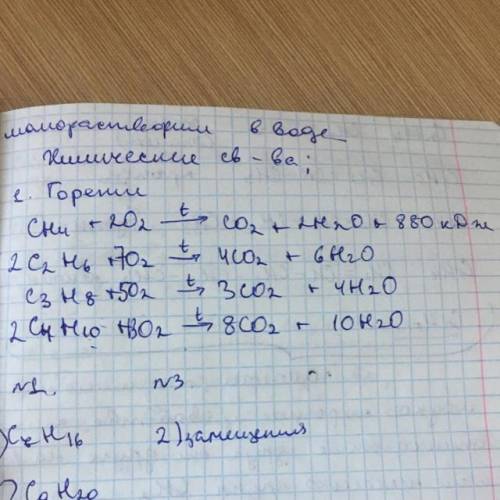 малорастворим в воде
Химические св-ва;
1. Горении
CH4 + 2O2 t→ CO2 + 2H2O + 880 кДж
2C2H6 + 7O2 t→ 4CO2 + 6H2O
C3H8 + 5O2 t→ 3CO2 + 4H2O
2C4H10 + 13O2 t→ 8CO2 + 10H2O
№1. №3
) C7H16 2) замещения
) C9H20